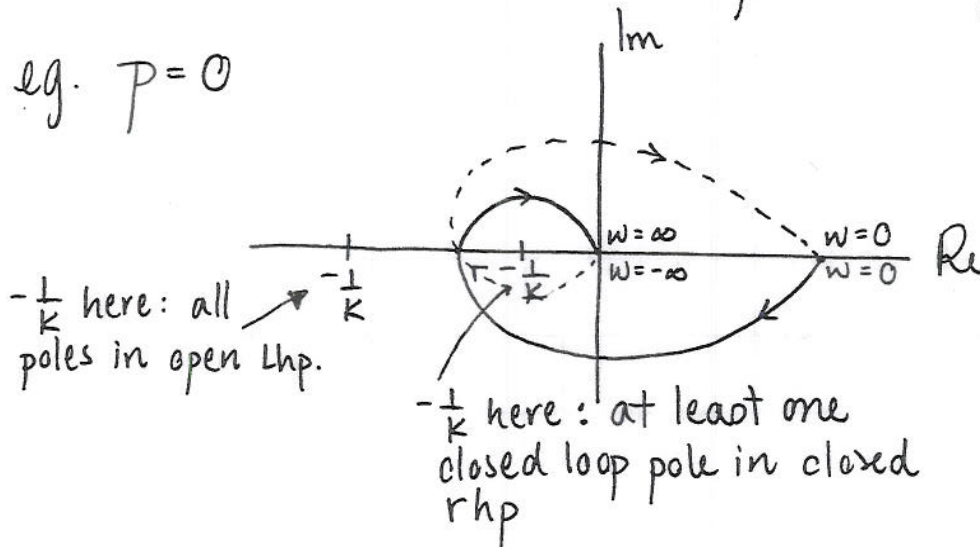 Im
eg. p = 0
w = ∞
w = -∞
w = 0
w = 0
Re
-1/K
-1/K
-1/K here: all
poles in open Lhp.
-1/K here: at least one
closed loop pole in closed
rhp